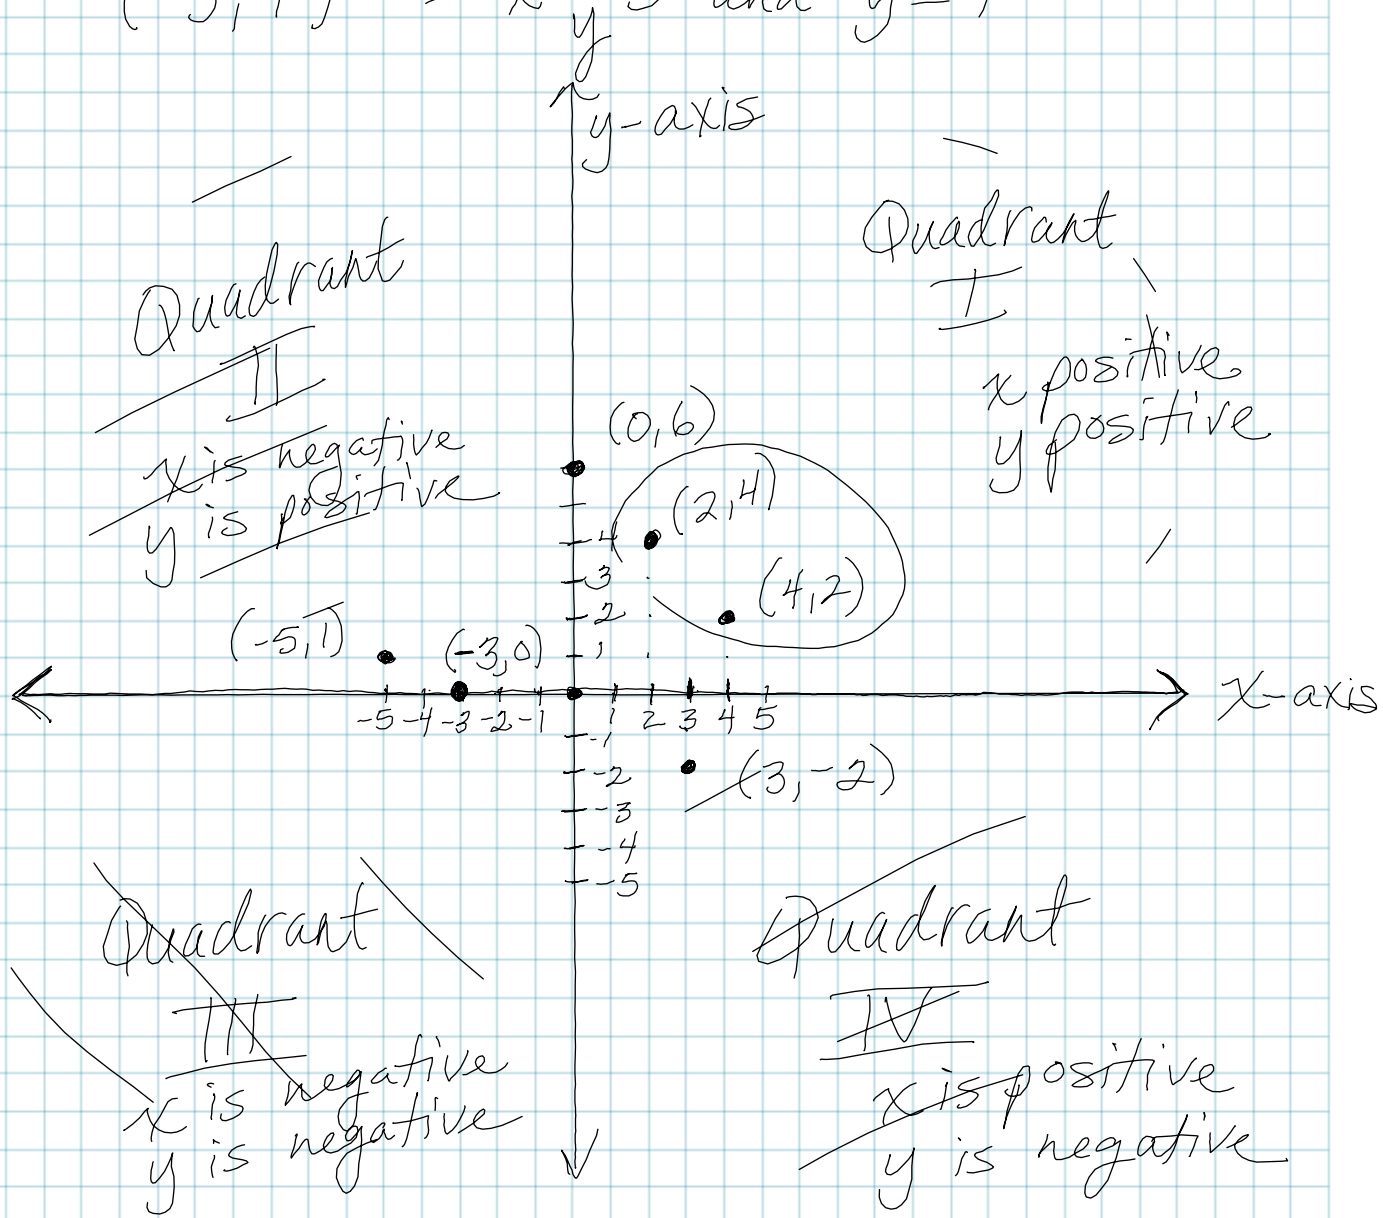 y
y-axis
Quadrant
I
x positive
y positive
Quadrant
II
x is negative
y is positive
(0,6)
(2,4)
(4,2)
4
3
2
1
(-5,1)
(-3,0)
x-axis
-5 -4 -3 -2 -1 1 2 3 4 5
-1
-2
-3
-4
-5
(3,-2)
Quadrant
III
x is negative
y is negative
Quadrant
IV
x is positive
y is negative